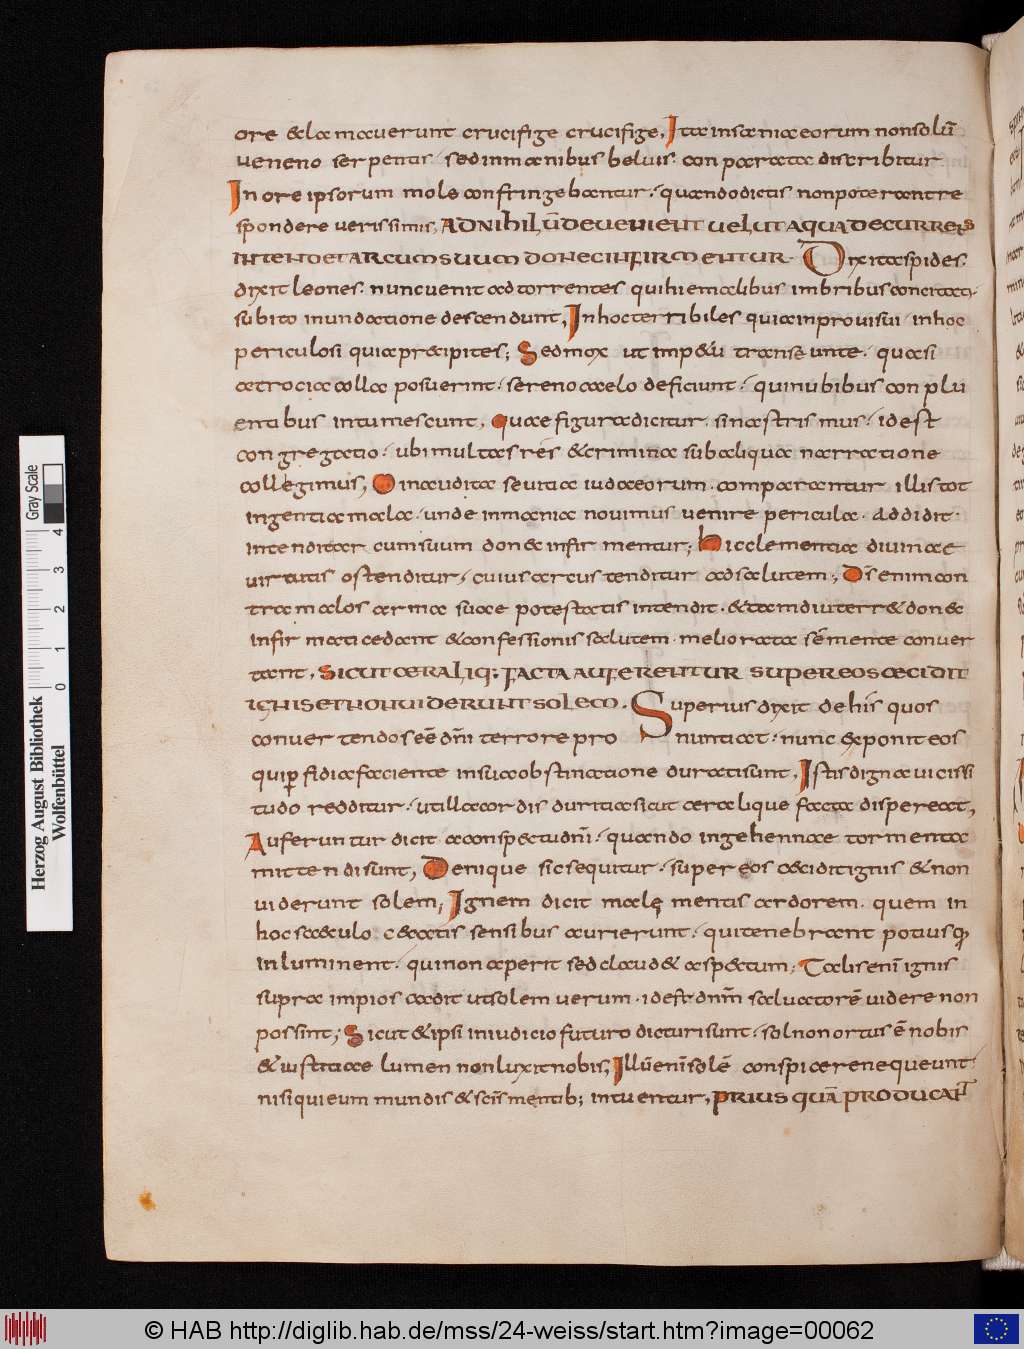 ore & lamauerunt crucifige crucifige, Ita insaniaeorum nonsolū
ueneno serpentis sedinmanibus beluis conparata discribitur
In ore ipsorum mole confringebantur quandodictis nonpoterantre
spondere uerissimis, ADNIHILŪDEVENIENT UELUTAQUADECURRENS
INTENDETARCUMSUUM DONECINFIRMENTUR. Dixitaspides.
dixit leones. nuncuenit adtorrentes quihiemalibus imbribusconcitati.
subito inundatione descendunt, Inhocterribiles quiainprouisui inhoc
periculosi quiaprecipites; Sedmox ut imp&u transeunte quasi
atrocia colla posuerint serenocaelo deficiunt quinubibus conplu
entibus intumescunt, Quaefiguradicitur sinastrismus idest
congregatio ubi multas res &crimina subaliqua narratione
collegimus, O inaudita seuitia iudaeorum. comparantur illis tot
ingentia mala unde inmania nouimus uenire pericula. addidit.
intenditar cumsuum don&infirmentur; Hicclementia diuinae
uirtutis ostenditur, cuius arcus tenditur adsalutem; Dsenimcon
tra malos arma suae potestatis intendit. &tamdiuterr& don&
infirmati cedant &confessionis salutem. meliorata semente conuer
tant, SICUTCERALIQ: FACTA AUFERENTUR SUPEREOSCECIDIT
IGNISETNONUIDERUNTSOLEM. Superiusdixit dehis quos
conuertendosēē dn̄i terrorepro nuntiat. nunc &exponit eos
quip fidiafaciente insuaobstinatione duratisunt, Istis digna uicissi
tudo redditur. utillacordis duritiasicut ceraelique facta dispereat,
Auferuntur dicit aconspectudn̄i. quando ingehennae tormenta
mittendisunt, Denique sicsequitur. super eos ceciditignis &non
uiderunt solem, Ignem dicit malę mentis ardorem. quem in
hocsaeculo cecatis sensibus aurierunt. quitenebrant potiusq
inluminent. quinonaperit sedclaud& aspectum; Talisenī ignis
supra impios cadit utsolem uerum. idest dnm̄ saluatorē uidere non
possint; Sicut &ipsi iniudiciofuturo dicturisunt. solnonortus ē nobis
&iustitiae lumen nonluxitnobis, Illūenīsolē conspicerenequeunt
nisiquieum mundis &scīsmentib; intuentur, PRIUS QUĀ PRODUCANT
Herzog August Bibliothek
Wolfenbüttel
Gray Scale
0 1 2 3 4
© HAB http://diglib.hab.de/mss/24-weiss/start.htm?image=00062